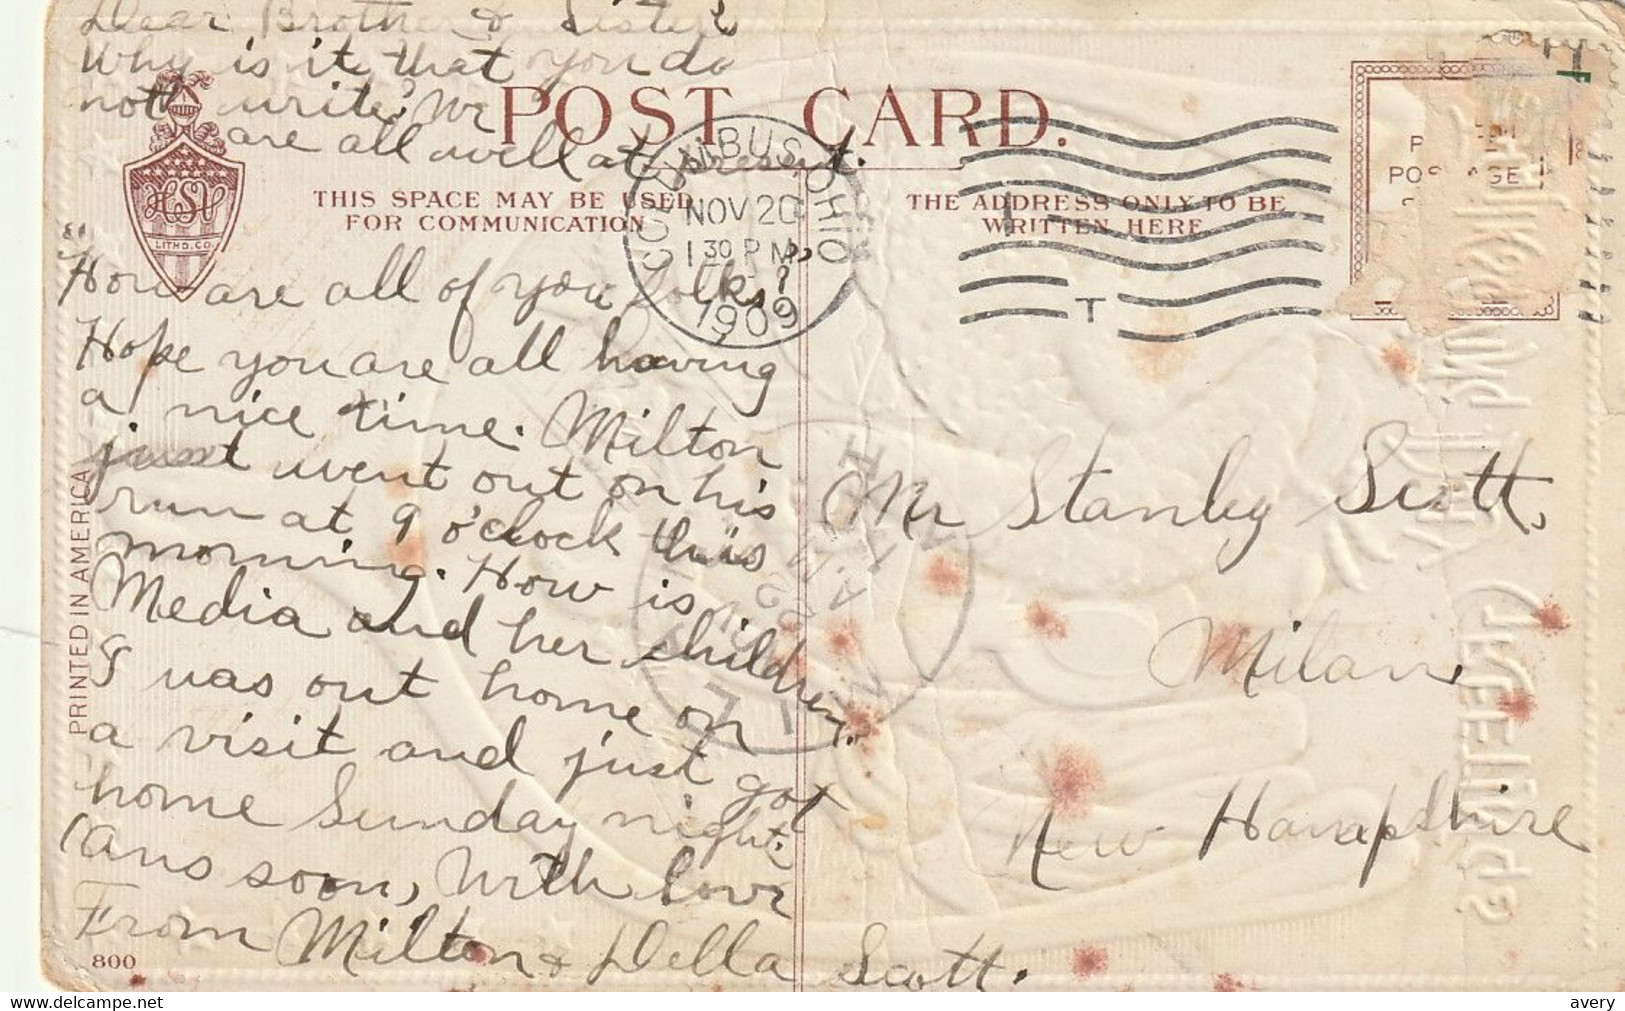 Dear Brother & Sister,
Why is it that you do
not write? We
are all well at present.
POST CARD.
THIS SPACE MAY BE USED
FOR COMMUNICATION
THE ADDRESS ONLY TO BE
WRITTEN HERE
LITHO. CO.
COLUMBUS, OHIO
NOV 20
1 30 PM
1909
T
How are all of you folks?
Hope you are all having
a nice time. Milton
just went out on his
run at 9 o'clock this
morning. How is
Media and her children.
I was out home on
a visit and just got
home Sunday night.
(Ans soon, With love
From Milton & Della Scott.
Mr Stanley Scott,
Milan,
New Hampshire
PRINTED IN AMERICA
800
www.delcampe.net
avery